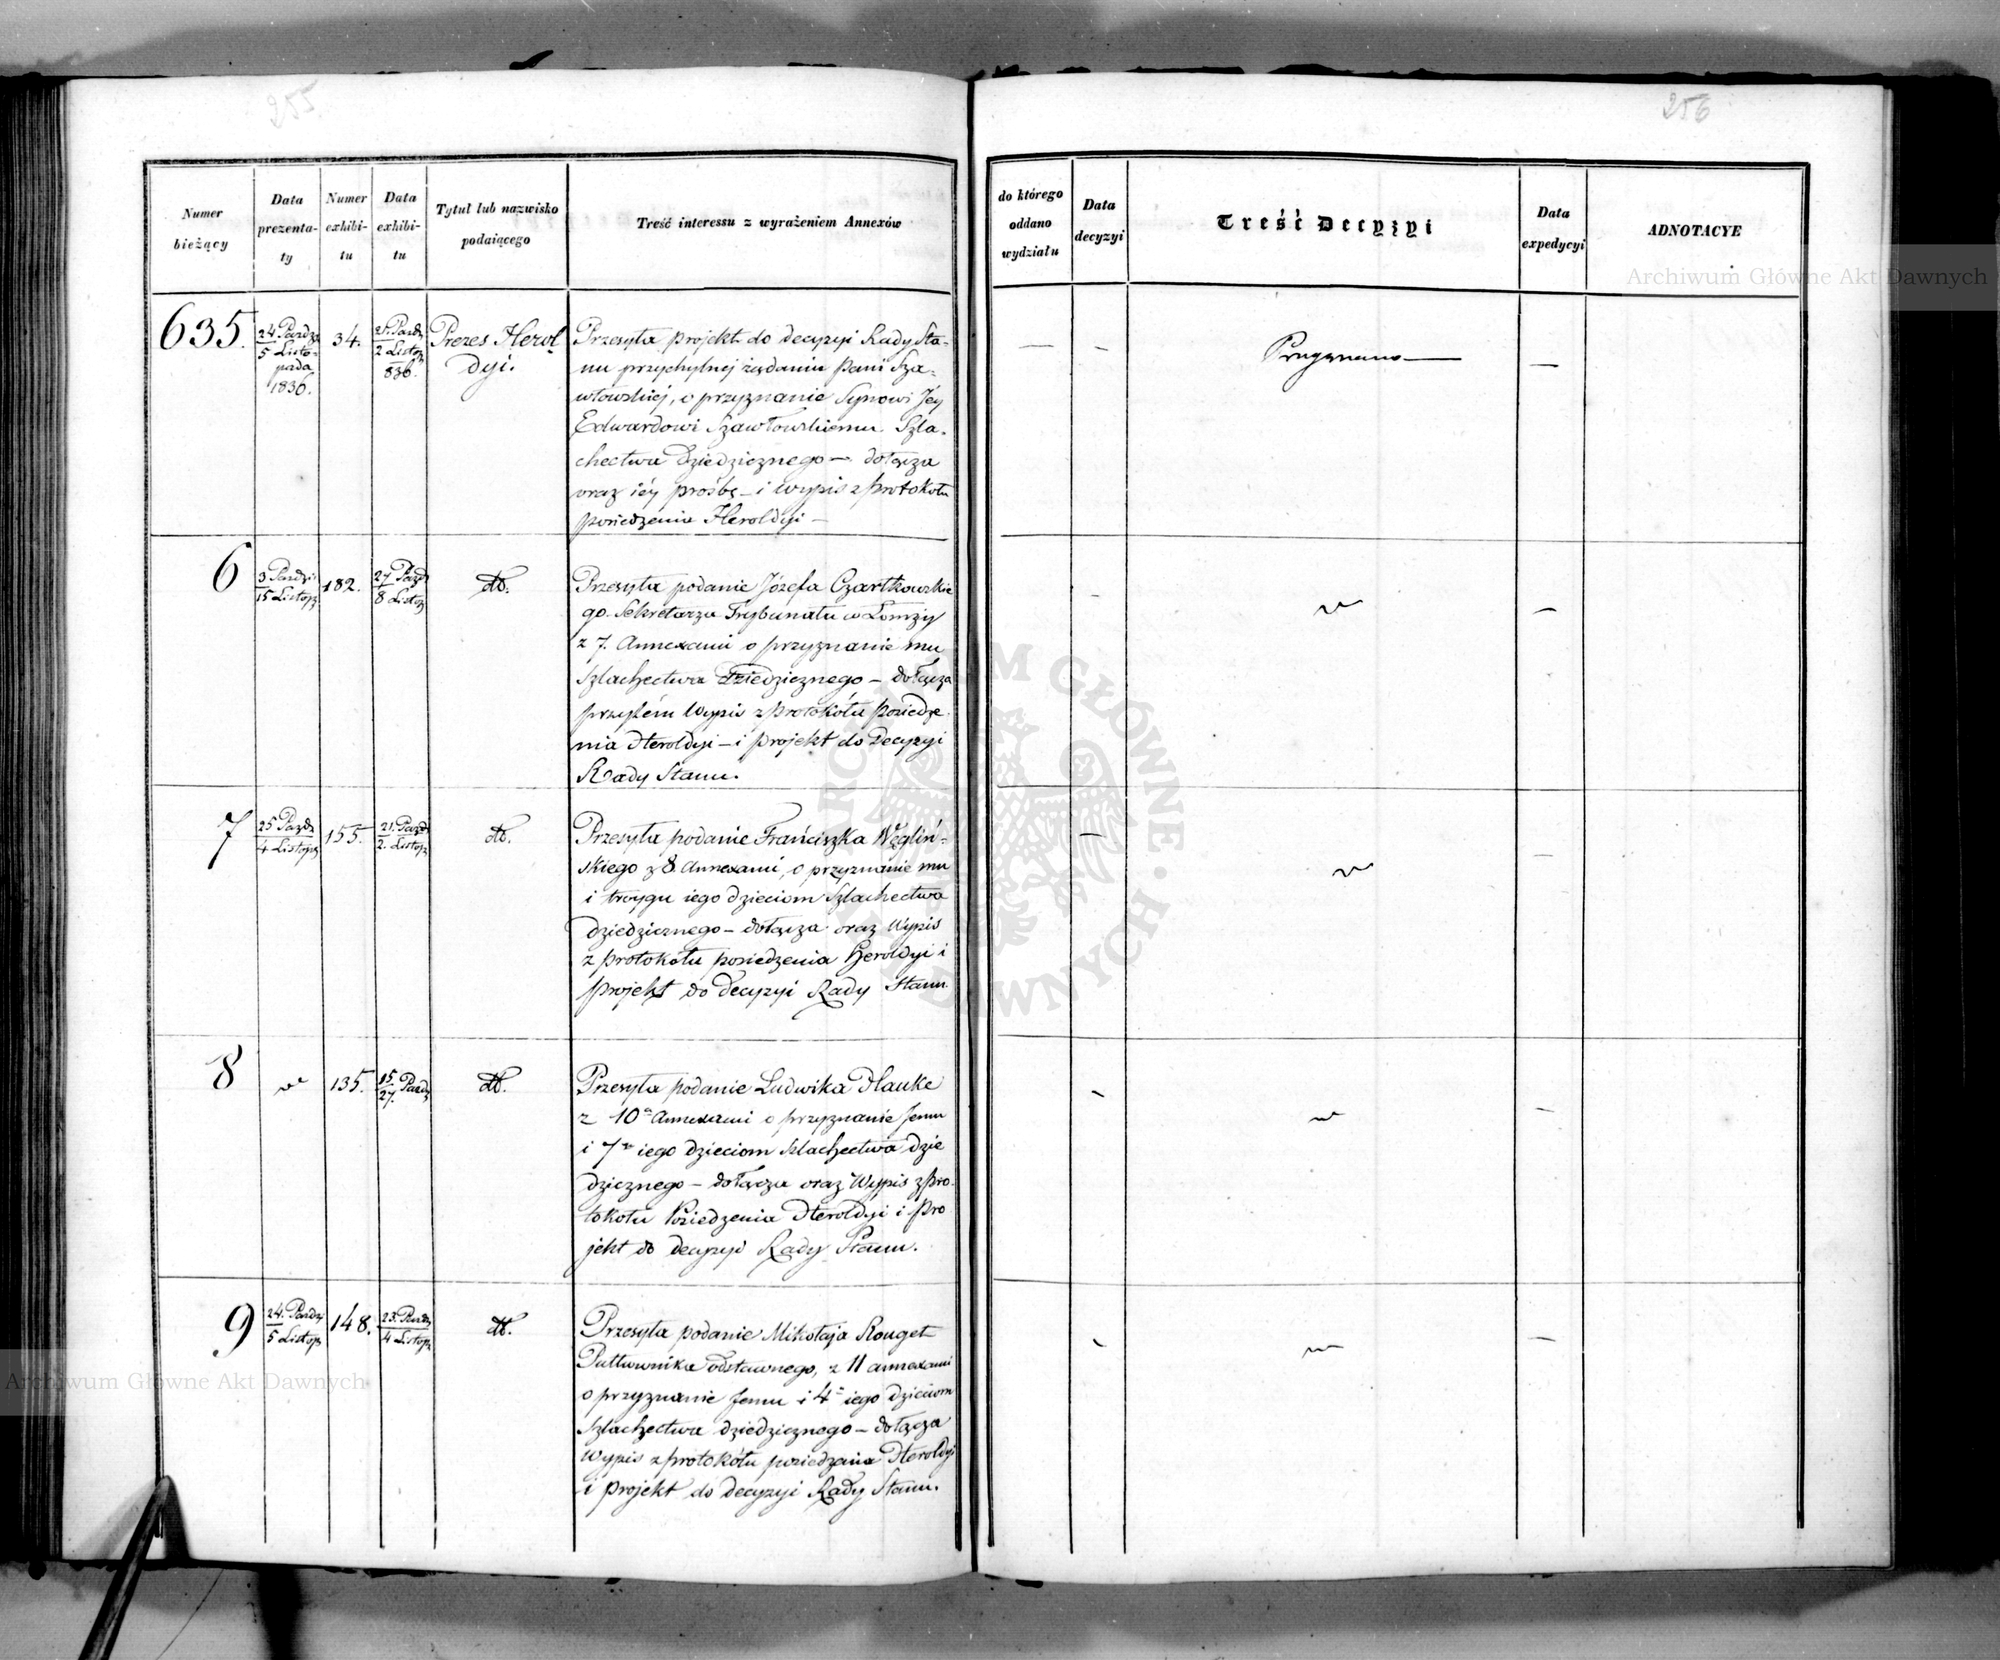 255
256
Numer bieżący
Data prezentaty
Numer exhibitu
Data exhibitu
Tytuł lub nazwisko podaiącego
Treść interessu z wyrażeniem Annexów
do którego oddano wydziału
Data decyzyi
Treść Decyzyi
Data expedycyi
ADNOTACYE
635.
24 Paźdz
5 Listo-
pada
1836.
34.
21. Paźdz
2 Listop
836.
Prezes Herol
dyi.
Przesyła projekt do decyzyi Rady Sta-
nu przychylnej żądaniu Pani Sza-
włowskiéj, o przyznanie Synowi Jéy
Edwardowi Szawłowskiemu Szla-
chectwa Dziedzicznego — dołącza
oraz iéy prośbę — i wypis z protokołu
posiedzenia Heroldyi —
6
3 Paździ
15 Listop
182.
27 Paźd
8 Listop
dto.
Przesyła podanie Józefa Czartkowskie
go Sekretarza Trybunału w Łomży
z 7. Annexami o przyznanie mu
Szlachectwa Dziedzicznego — dołącza
przytém Wypis z protokółu posiedze-
nia Heroldyi — i projekt do Decyzyi
Rady Stanu.
7
25 Paźdz
4 Listop
155.
21. Paźdz
2. Listop
dto.
Przesyła podanie Franciszka Węgliń-
skiego z 8. Annexami, o przyznanie mu
i troygu iego dzieciom Szlachectwa
dziedzicznego — dołącza oraz Wypis
z protokołu posiedzenia Heroldyi i
projekt do Decyzyi Rady Stanu
8
135.
15.
27. Paźdz
dto.
Przesyła podanie Ludwika Hauke
z 10 Annexami o przyznanie Jemu
i 7 iego dzieciom Szlachectwa dzie
dzicznego — dołącza oraz Wypis z pro-
tokołu Posiedzenia Heroldyi i pro
jekt do decyzyi Rady Stanu.
9
24. Paździ
5 Listop
148.
23. Paźdz
4 Listop
dto.
Przesyła podanie Mikołaja Rouget
Pułkownika odstawnego, z 11 annexami
o przyznanie Jemu i 4 iego dzieciom
Szlachectwa dziedzicznego — dołącza
Wypis z protokółu posiedzenia Heroldyi
i projekt do decyzyi Rady Stanu.
Przyznano —
Archiwum Główne Akt Dawnych
Archiwum Główne Akt Dawnych
ARCHIWUM GŁÓWNE AKT DAWNYCH